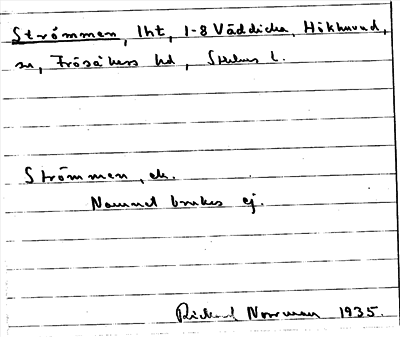 Strömmen, lht, 1-8 Väddicka, Hökhuvud,
sn, Frösåkers hd, Sthlms l.
Strömmen, ek.
Namnet brukas ej.
Rickard Norrman 1935.